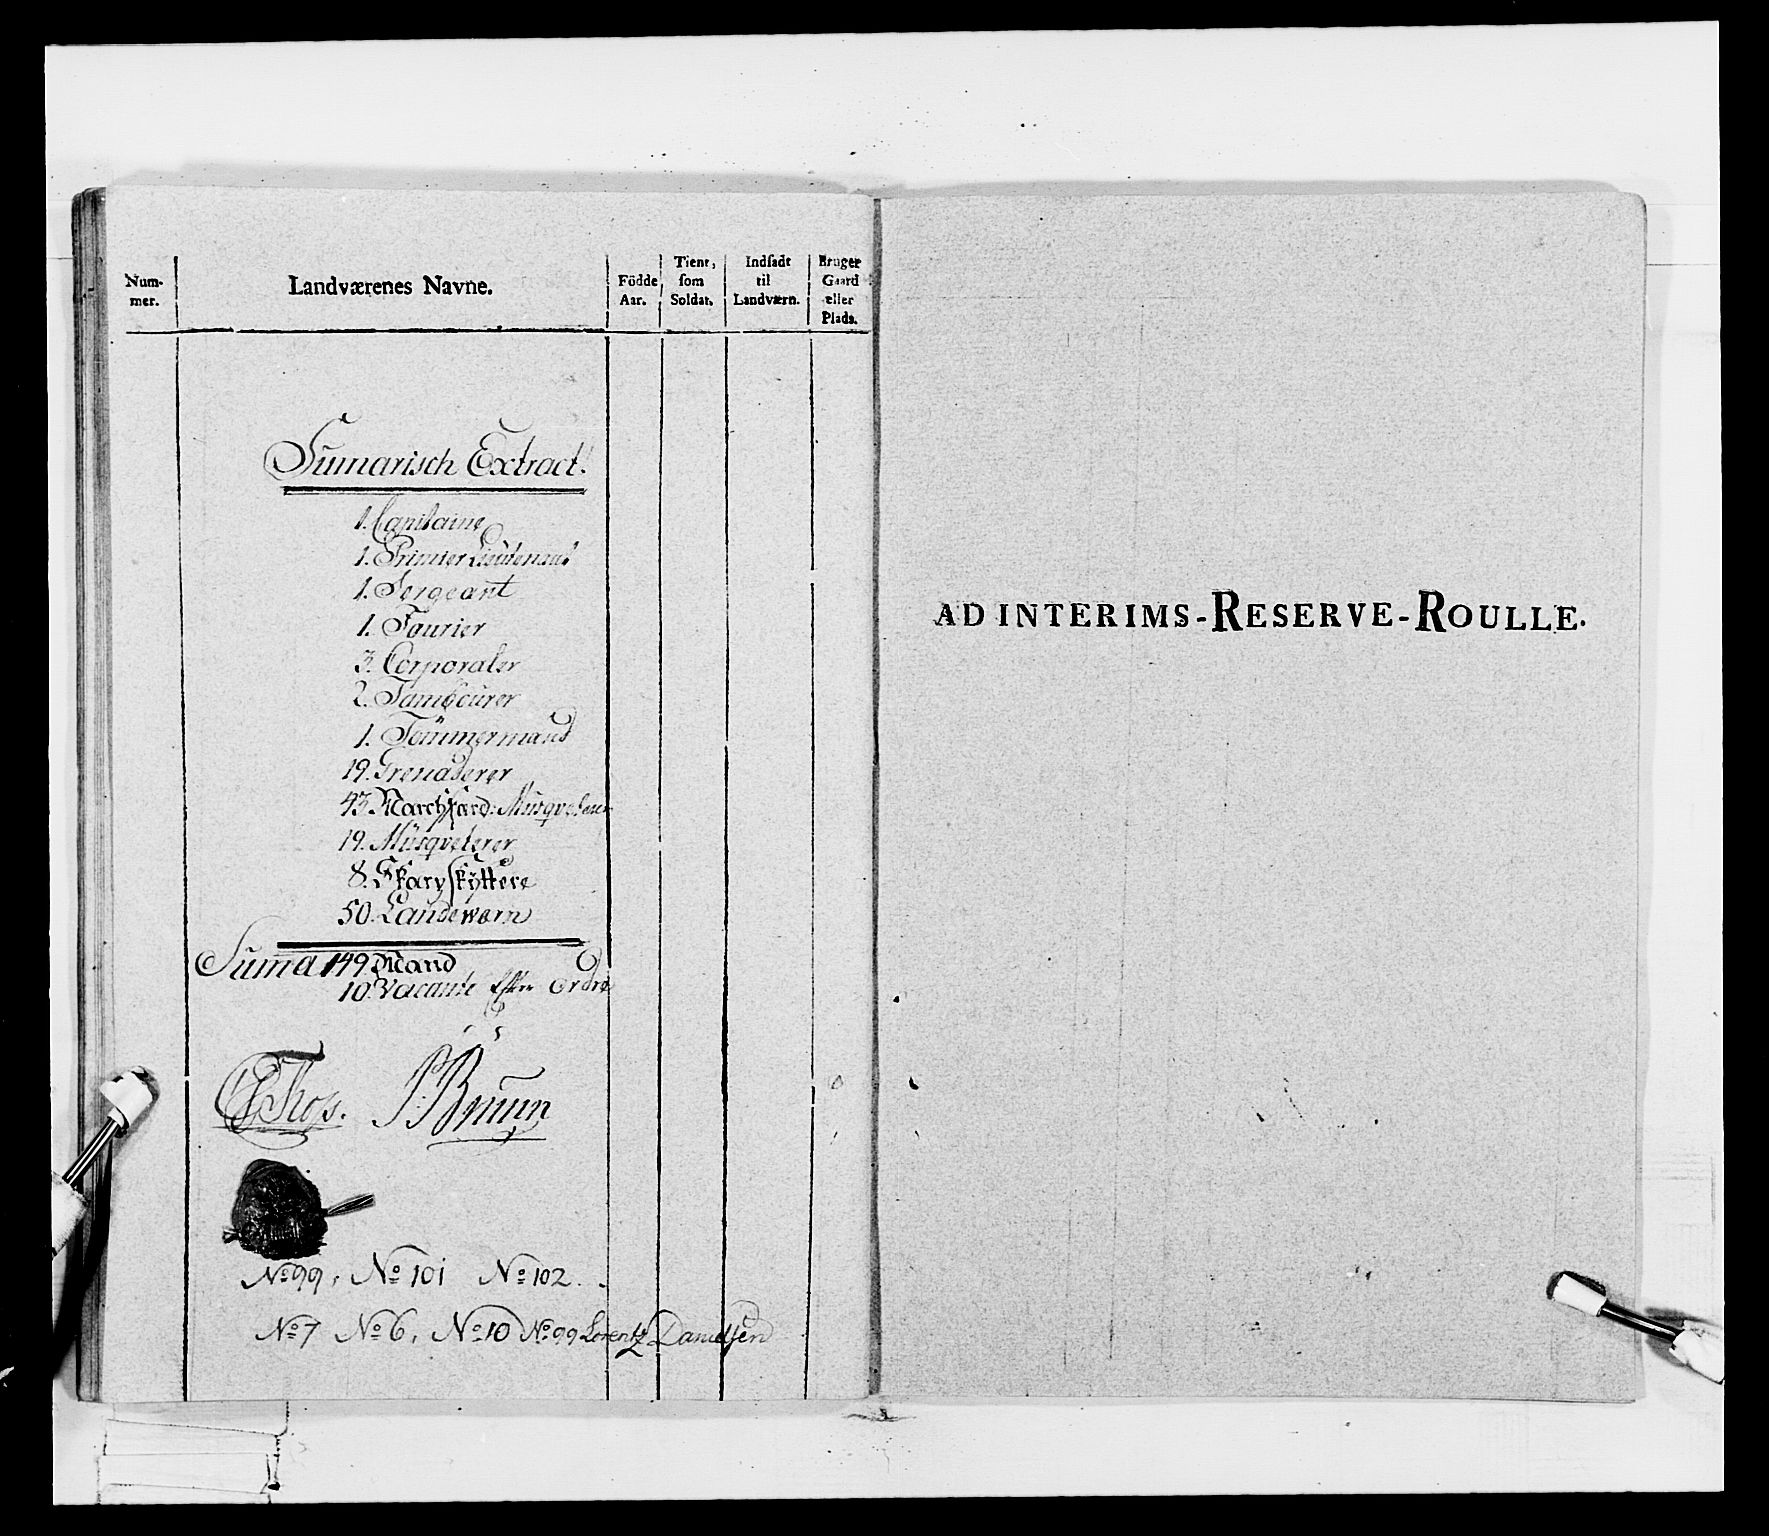 Num-
mer.
Landværenes Navne.
Födde
Aar.
Tient,
som
Soldat.
Indsadt
til
Landværn.
Bruger
Gaard
eller
Plads.
Sumarisch Extract.
1. Capitaine
1. Primier Lieutenant
1. Sergeant
1. Fourier
3. Corporaler
2. Tambourer
1. Tömmermand
19. Grenaderer
43. Marchfærd: Musqveterer
19. Musqveterer
8. Skarpskÿttere
50. Landeværn
Suma 149 Mand
10. Vacante Efter Ordre
P. Bruun
No 99, No 101 No 102.
No 7 No 6, No 10 No 99 Lorentz Danielsen
AD INTERIMS-RESERVE-ROULLE.